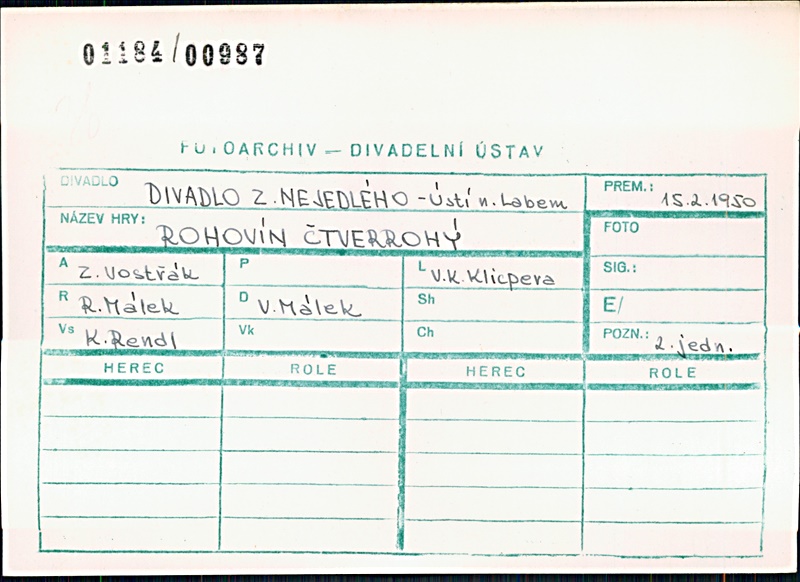 01184/00987
FOTOARCHIV — DIVADELNÍ ÚSTAV
DIVADLO DIVADLO Z. NEJEDLÉHO - Ústí n. Labem PREM.: 15.2.1950
NÁZEV HRY: ROHOVÍN ČTVERROHÝ FOTO
A Z. Vostřák P L V.K. Klicpera SIG.:
R R. Málek D V. Málek Sh E/
Vs K. Rendl Vk Ch POZN.: 2. jedn.
HEREC ROLE HEREC ROLE